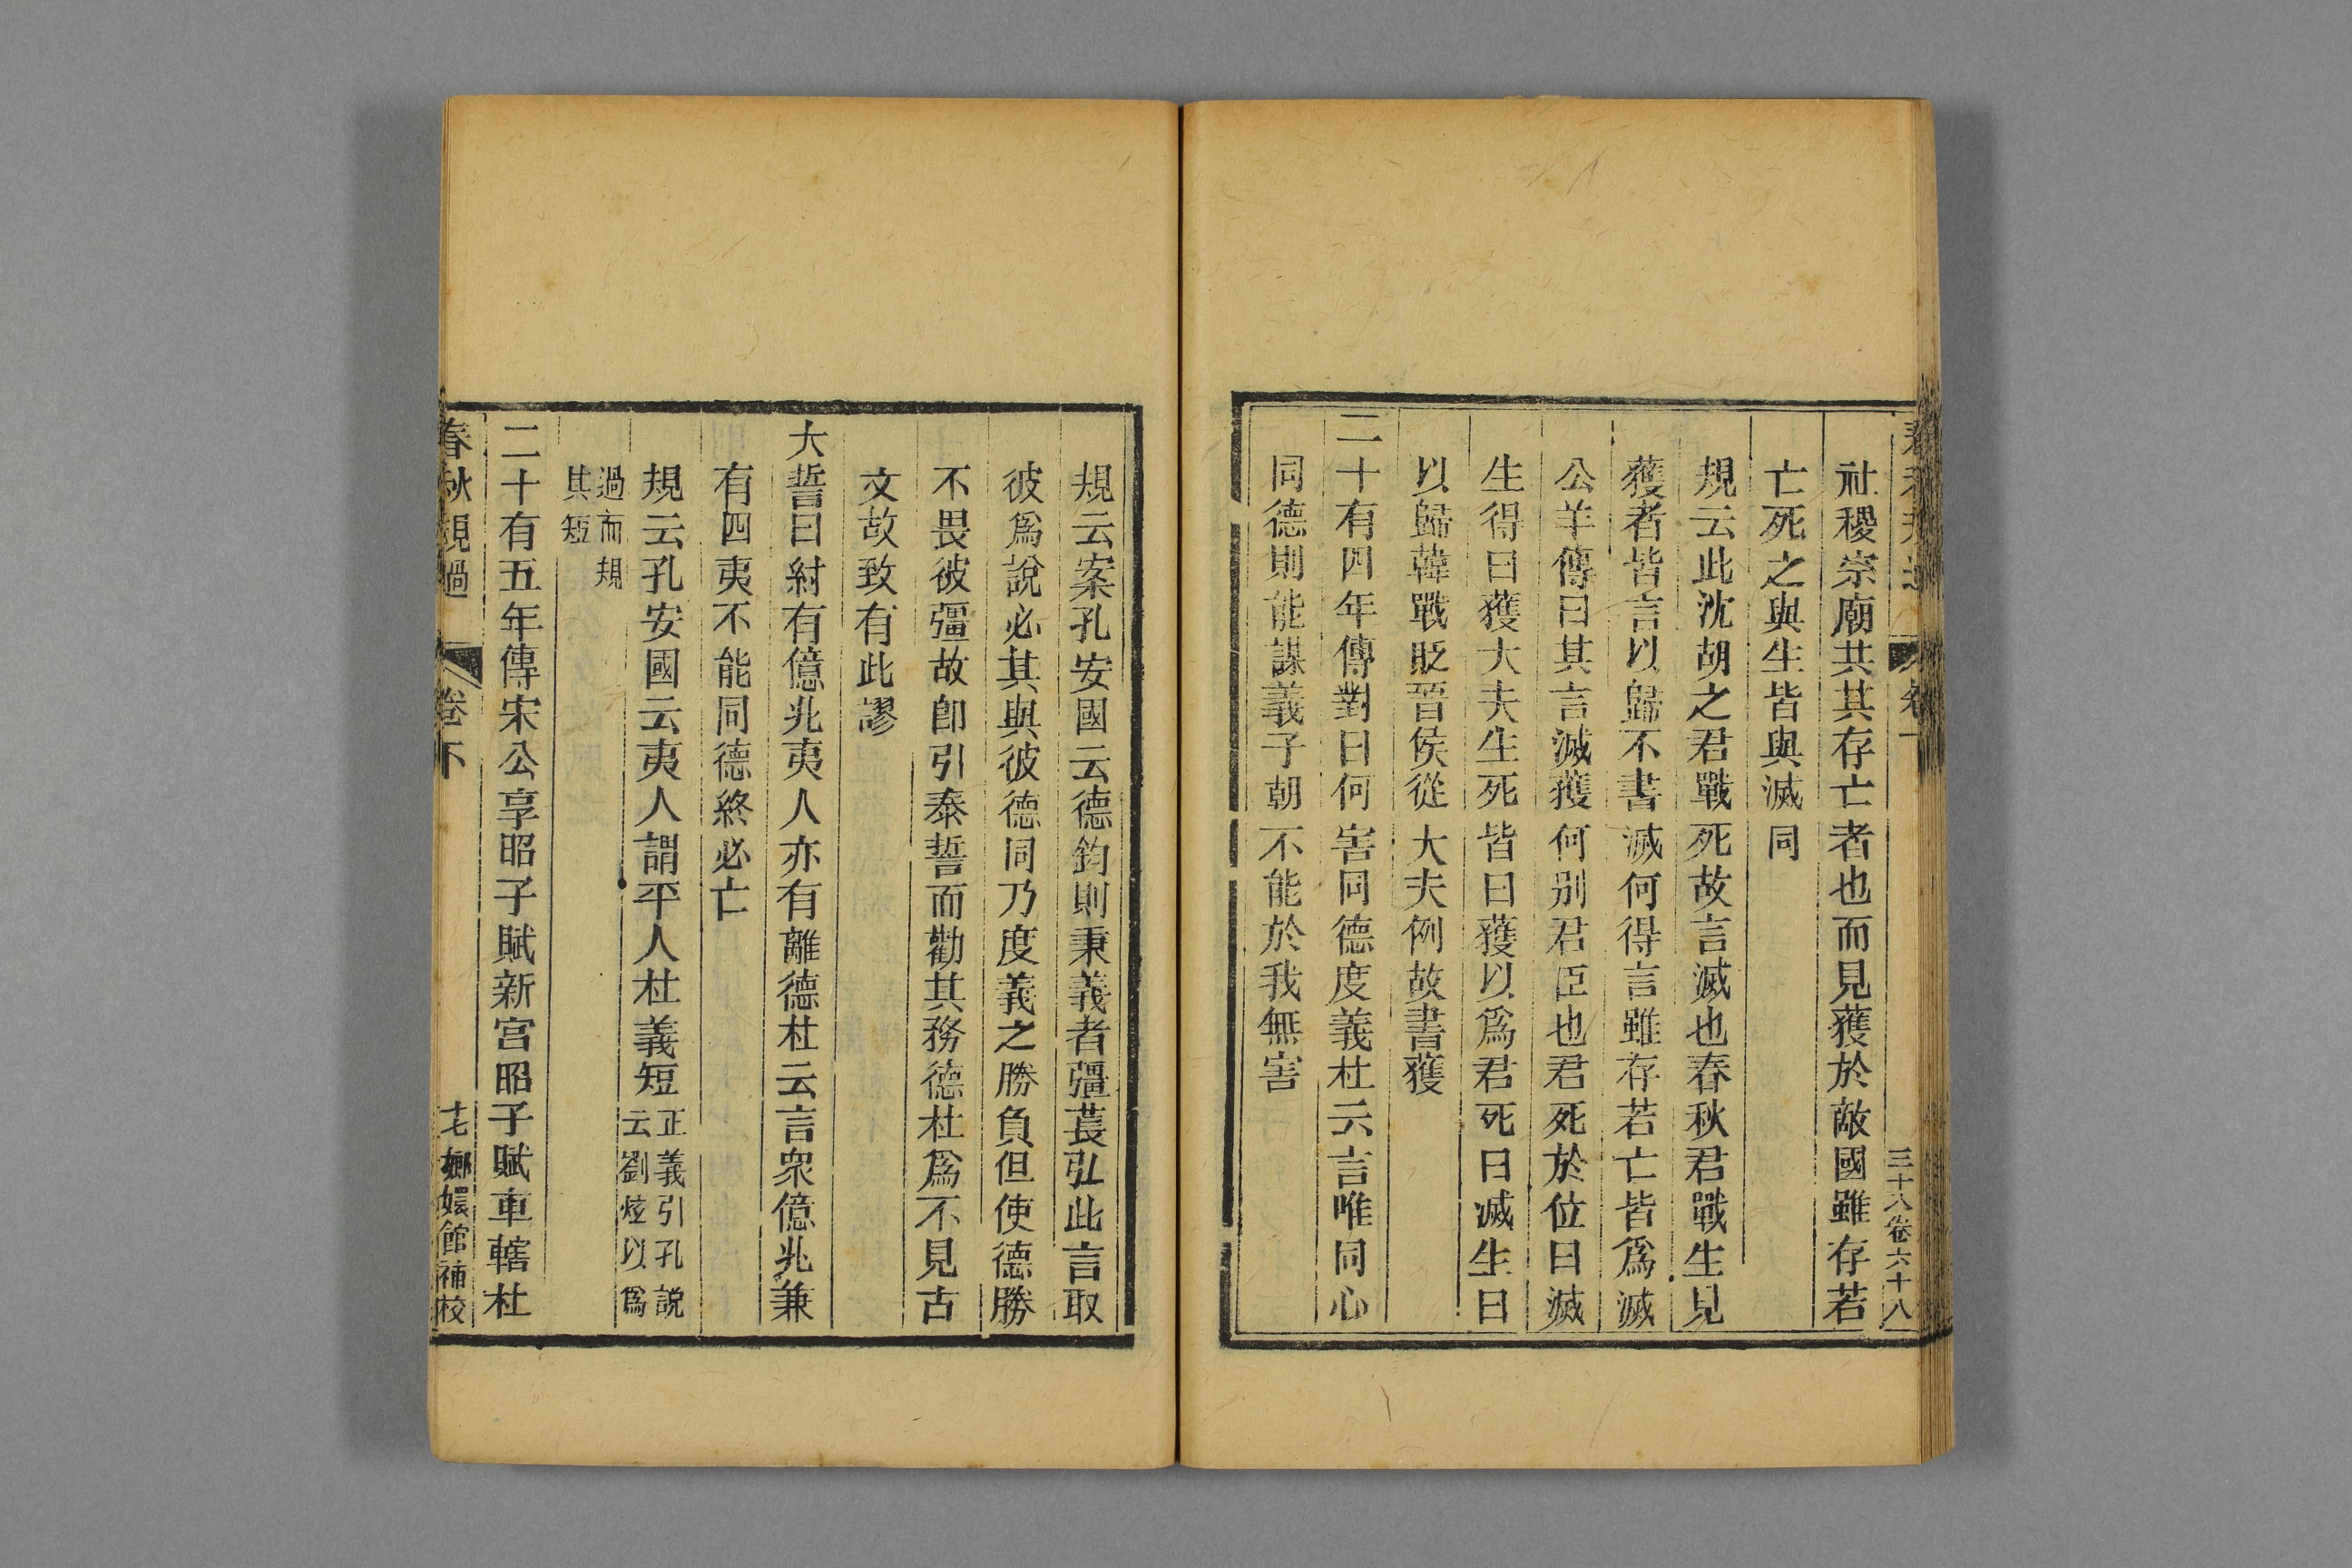 三十八卷六十八
社稷宗廟共其存亡者也而見獲於敵國雖存若
亡死之與生皆與滅同
規云此沈胡之君戰死故言滅也春秋君戰生見
獲者皆言以歸不書滅何得言雖存若亡皆爲滅
公羊傳曰其言滅獲何別君臣也君死於位曰滅
生得曰獲大夫生死皆曰獲以爲君死曰滅生曰
以歸韓戰貶晉侯從大夫例故書獲
二十有四年傳對曰何害同德度義杜云言唯同心
同德則能謀義子朝不能於我無害
規云案孔安國云德鈞則秉義者彊萇弘此言取
彼爲說必其與彼德同乃度義之勝負但使德勝
不畏彼彊故卽引泰誓而勸其務德杜爲不見古
文故致有此謬
大誓曰紂有億兆夷人亦有離德杜云言衆億兆兼
有四夷不能同德終必亡
規云孔安國云夷人謂平人杜義短正義引孔說
云劉炫以爲
過而規
其短
二十有五年傳宋公享昭子賦新宮昭子賦車轄杜
春秋規過 卷下 十七 嫏嬛館補校